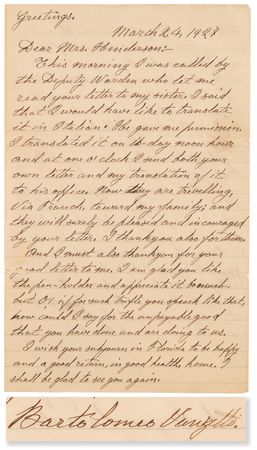 Greetings.
March 24, 1928
Dear Mrs. Henderson:-
This morning I was called by
the Deputy Warden who let me
read your letter to my sister. I said
that I would have like to translate
it in Italian. He gave me permission.
I translated it on to-day noon hour
and at one o'clock I send both your
own letter and my translation of it
to his office. Now they are travelling,
Via French, toward my family; and
they will surely be pleased and incouraged
by your letter. I thank you also for them.
And I must also thank you for your
good letter to me. I am glad you like
the pen-holder and appreciate it so much
but O! if for such trifle you speech like that,
how could I say for the unpayable good
that you have done and are doing to us.
I wish your subjourn in Florida to be happy
and a good return, in good health, home. I
shall be glad to see you again.
Bartolomeo Vanzetti